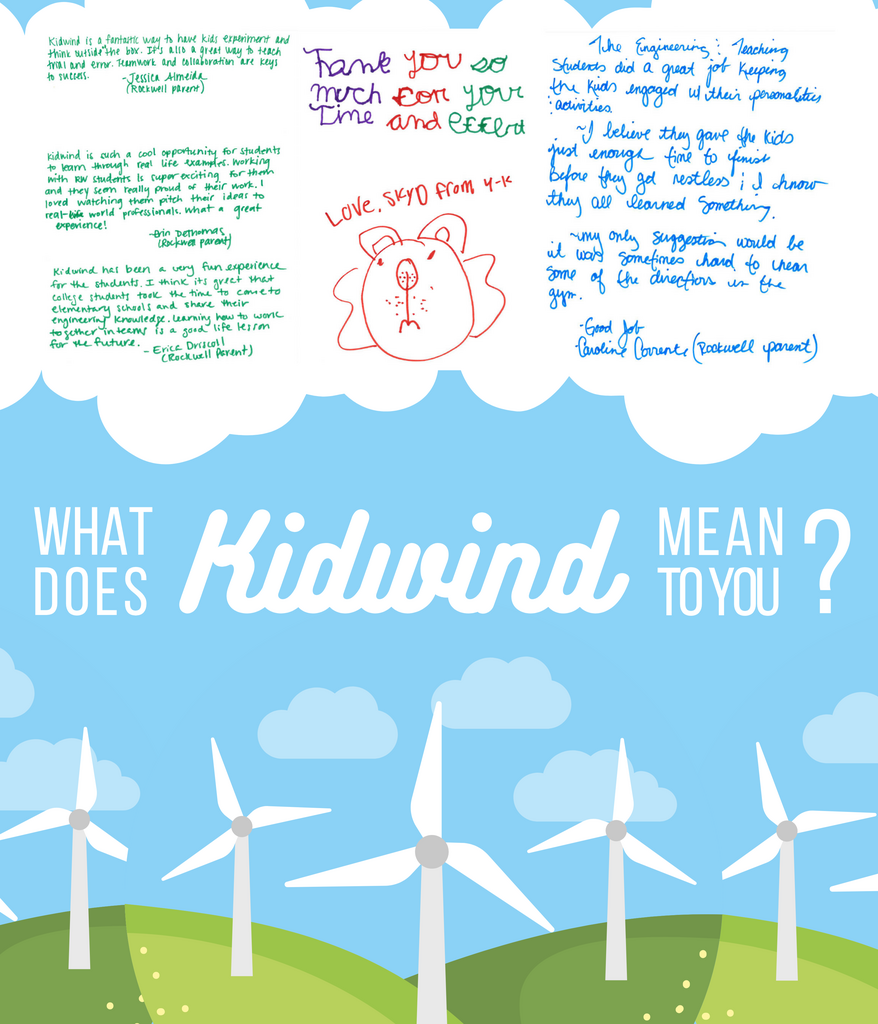 Kidwind is a fantastic way to have kids experiment and
think outside the box. It's also a great way to teach
trial and error. Teamwork and collaboration are keys
to success.
-Jessica Almeida
(Rockwell parent)
Kidwind is such a cool opportunity for students
to learn through real life examples. Working
with RW students is super exciting for them
and they seem really proud of their work. I
loved watching them pitch their ideas to
real-life world professionals. What a great
experience!
-Erin DeThomas
(Rockwell parent)
Kidwind has been a very fun experience
for the students. I think its great that
college students took the time to come to
elementary schools and share their
engineering knowledge. Learning how to work
together in teams is a good life lesson
for the future.
- Erica Driscoll
(Rockwell Parent)
Thank you so
much for your
Time and effort
Love, SKYD from 4-K
The Engineering & Teaching
Students did a great job keeping
the kids engaged w/ their personalities
& activities.
~I believe they gave the kids
just enough time to finish
before they got restless & I know
they all learned something.
~my only suggestion would be
it was sometimes hard to hear
some of the direction in the
gym.
-Good Job
Caroline Corrente (Rockwell parent)
WHAT
DOES
Kidwind
MEAN
TO YOU
?